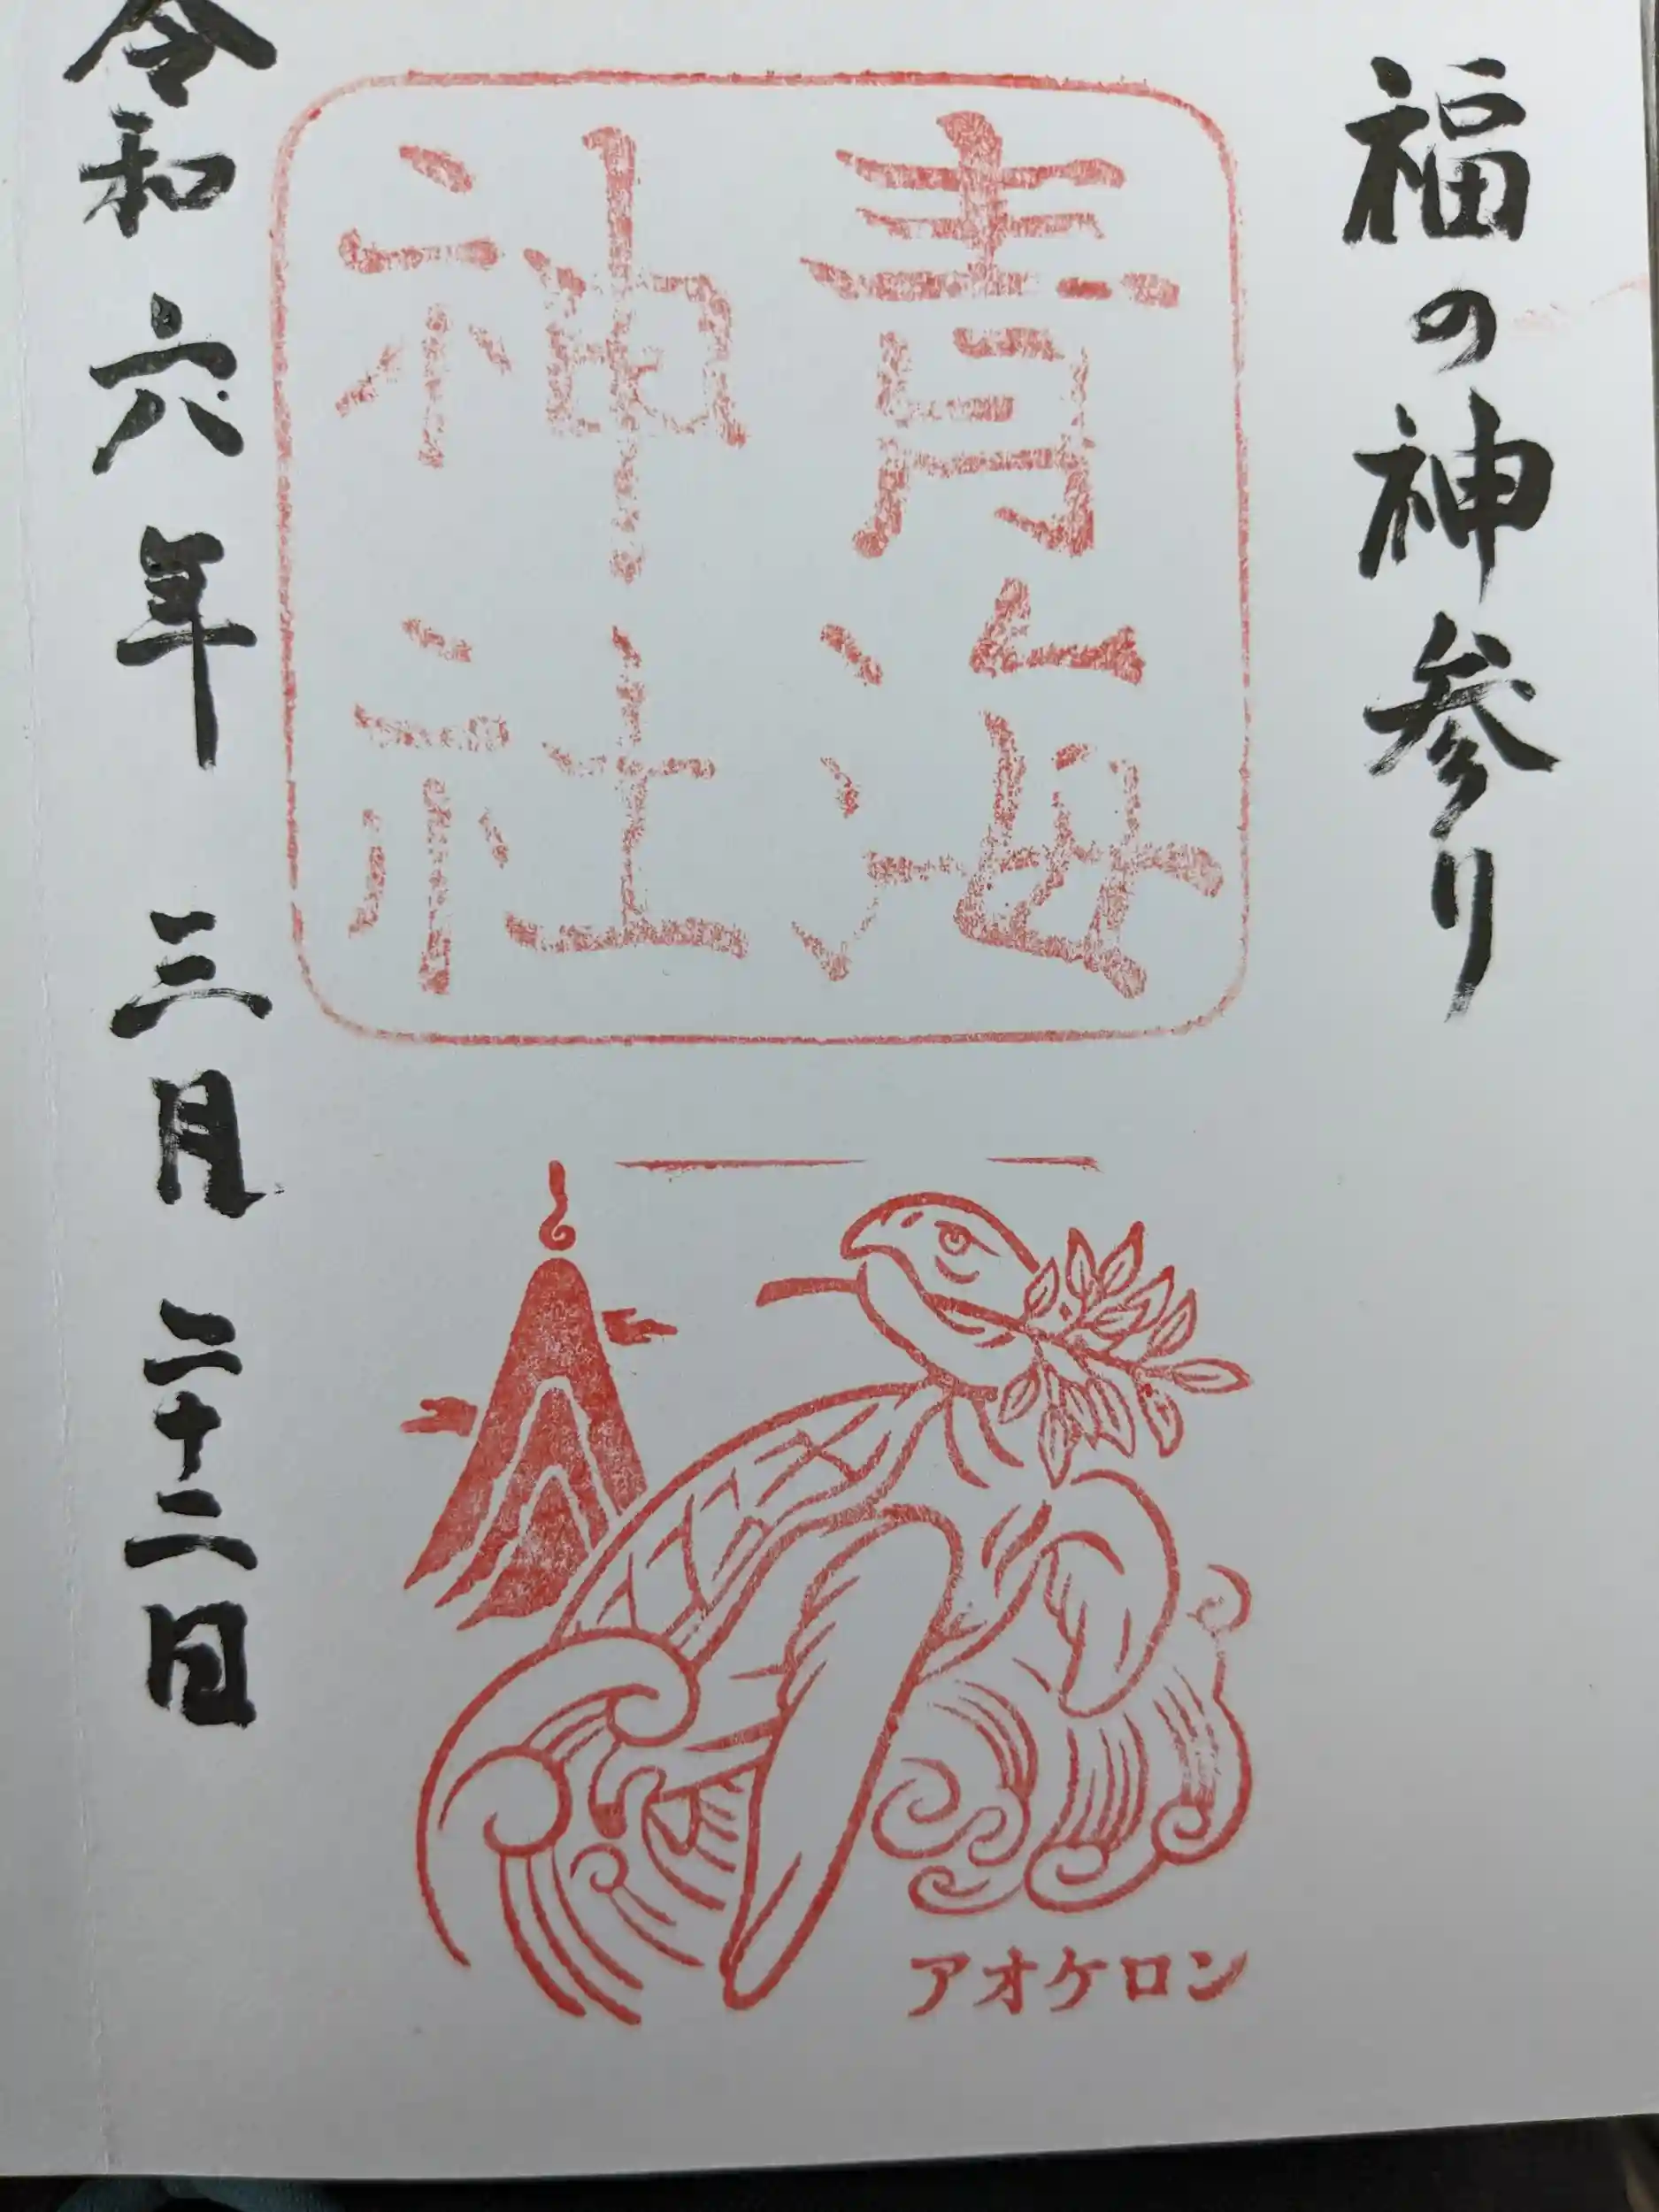 福の神参り
青海
神社
令和六年三月二十二日
アオケロン